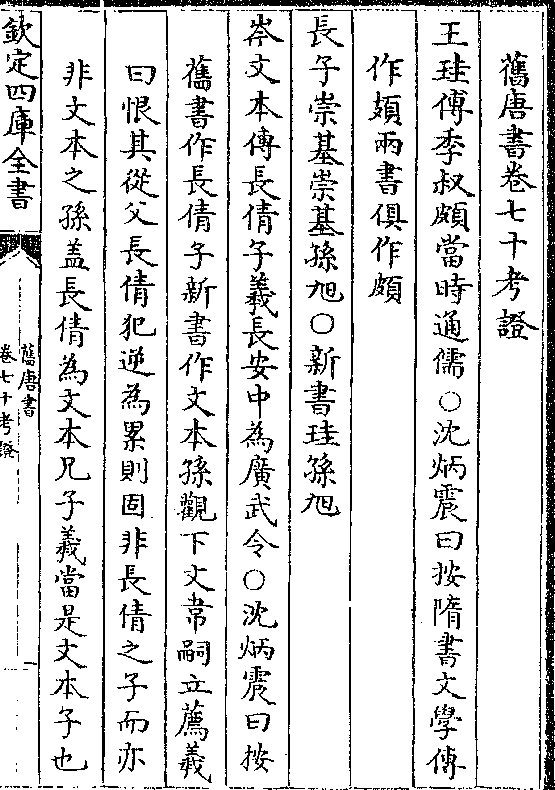 舊唐書卷七十考證
王珪傳季叔頗當時通儒○沈炳震曰按隋書文學傳
作頍兩書俱作頗
長子崇基崇基孫旭○新書珪孫旭
岑文本傳長倩子羲長安中為廣武令○沈炳震曰按
舊書作長倩子新書作文本孫觀下文韋嗣立薦羲
曰恨其從父長倩犯逆為累則固非長倩之子而亦
非文本之孫盖長倩為文本兄子羲當是文本子也
欽定四庫全書
舊唐書
卷七十考證
一